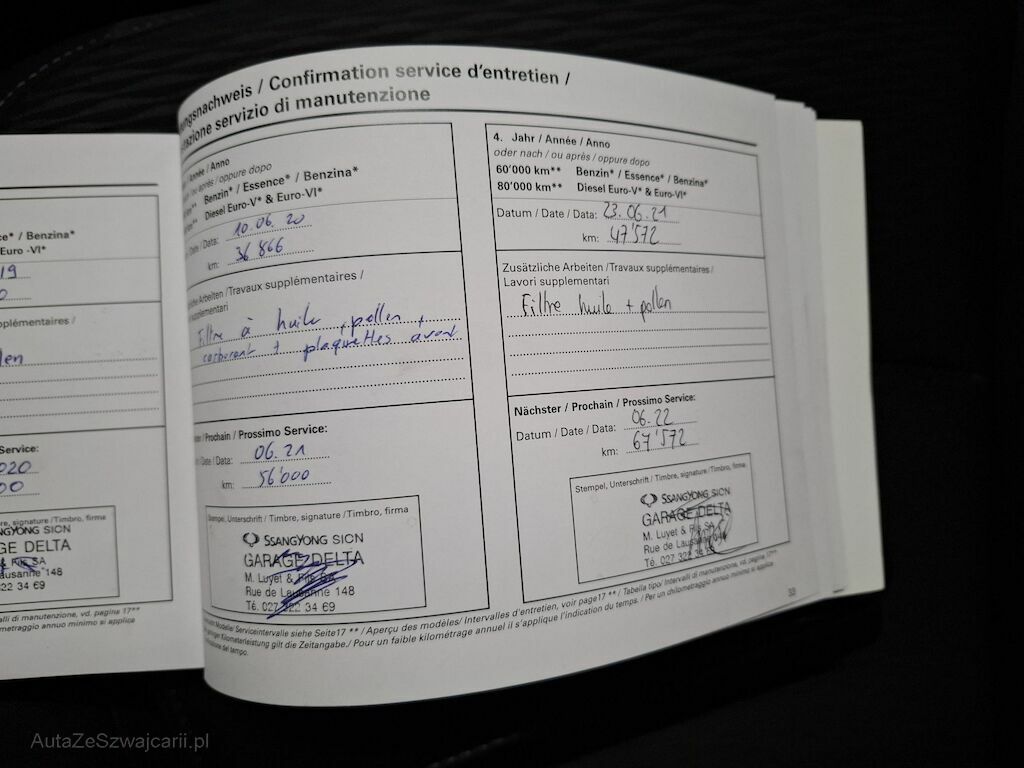 ungsnachweis / Confirmation service d'entretien /
azione servizio di manutenzione
ce* / Benzina*
Euro -VI*
19
0
plémentaires /
len
Service:
020
00
re, signature /Timbro, firma
NGYONG SICN
GE DELTA
& Fils SA
ausanne 148
22 34 69
alli di manutenzione, vd. pagina 17**
ometraggio annuo minimo si applica
Année / Anno
/ ou après / oppure dopo
km** Benzin* / Essence* / Benzina*
km** Diesel Euro-V* & Euro-VI*
Date / Data: 10.06.20
km: 36'866
liche Arbeiten /Travaux supplémentaires /
supplementari
Filtre à huile , pollen ,
carburant + plaquettes avant
ster / Prochain / Prossimo Service:
/ Date / Data: 06.21
km: 56'000
Stempel, Unterschrift / Timbre, signature /Timbro, firma
SSANGYONG SICN
GARAGE DELTA
M. Luyet & Fils SA
Rue de Lausanne 148
Té. 027 322 34 69
4. Jahr / Année / Anno
oder nach / ou après / oppure dopo
60'000 km** Benzin* / Essence* / Benzina*
80'000 km** Diesel Euro-V* & Euro-VI*
Datum / Date / Data: 23.06.21
km: 47'572
Zusätzliche Arbeiten /Travaux supplémentaires /
Lavori supplementari
Filtre huile + pollen
Nächster / Prochain / Prossimo Service:
Datum / Date / Data: 06.22
km: 67'572
Stempel, Unterschrift / Timbre, signature /Timbro, firma
SSANGYONG SICN
GARAGE DELTA
M. Luyet & Fils SA
Rue de Lausanne 148
Té. 027 322
Modelle/ Serviceintervalle siehe Seite17 ** / Aperçu des modèles/ Intervalles d'entretien, voir page17 ** / Tabella tipo/ Intervalli di manutenzione, vd. pagina 17**
geringer Kilometerleistung gilt die Zeitangabe./ Pour un faible kilométrage annuel il s'applique l'indication du temps. / Per un chilometraggio annuo minimo si applica
del tempo.
33
AutaZeSzwajcarii.pl